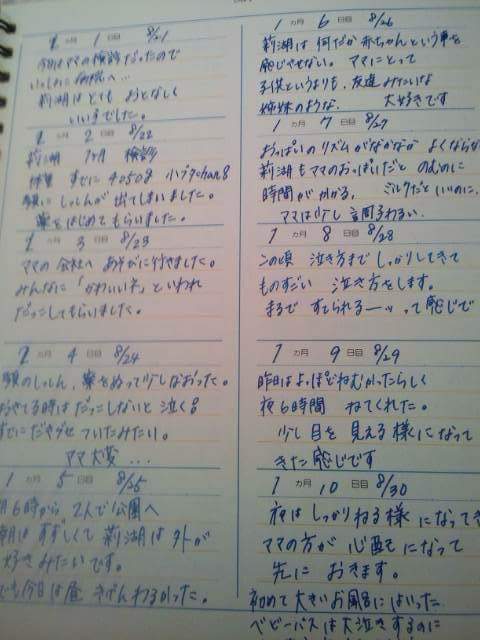 1 カ月 1 日目 8/21
今日はママの検診だったので
いっしょに病院へ…
莉湖はとても おとなしく
いい子でした。
1 カ月 2 日目 8/22
莉湖 1ヶ月 検診
体重 すでに 4050g 小ブタchan
顔に しっしんが 出てしまいました。
薬をはじめてもらいました。
1 カ月 3 日目 8/23
ママの 会社へ あそびに行きました。
みんなに「かわいいネ」といわれ
だっこしてもらいました。
1 カ月 4 日目 8/24
顔のしっしん、薬をぬって少しなおった。
おきてる時は だっこしないと 泣く
すでにだきグセ ついたみたい。
ママ 大変…
1 カ月 5 日目 8/25
月6時から 2人で公園へ
朝は すずしくて 莉湖は 外が
好きみたいです。
でも今日は 昼 きげんわるかった。
1 カ月 6 日目 8/26
莉湖は 何だか 赤ちゃんという事を
感じさせない。ママにとって
子供というよりも、友達みたいな
姉妹のような。 大好きです
1 カ月 7 日目 8/27
おっぱいのリズムがなかなか よくならない
莉湖もママのおっぱいだと のむのに
時間がかかる。 ミルクだといいのに、
ママは少し 言間子わるい.
1 カ月 8 日目 8/28
この頃 泣き方まで しっかりしてきて
ものすごい 泣き方をします。
まるで すてられるーッ って感じで
1 カ月 9 日目 8/29
昨日は よっぽどねむかったらしく
夜6時間 ねてくれた。
少し 目を 見える 様に なって
きた 感じです
1 カ月 10 日目 8/30
夜は しっかりねる 様 になってき
ママの方が 心配に なって
先に おきます。
初めて 大きいお風呂に はいった
ベビーバスは 大泣きするのに